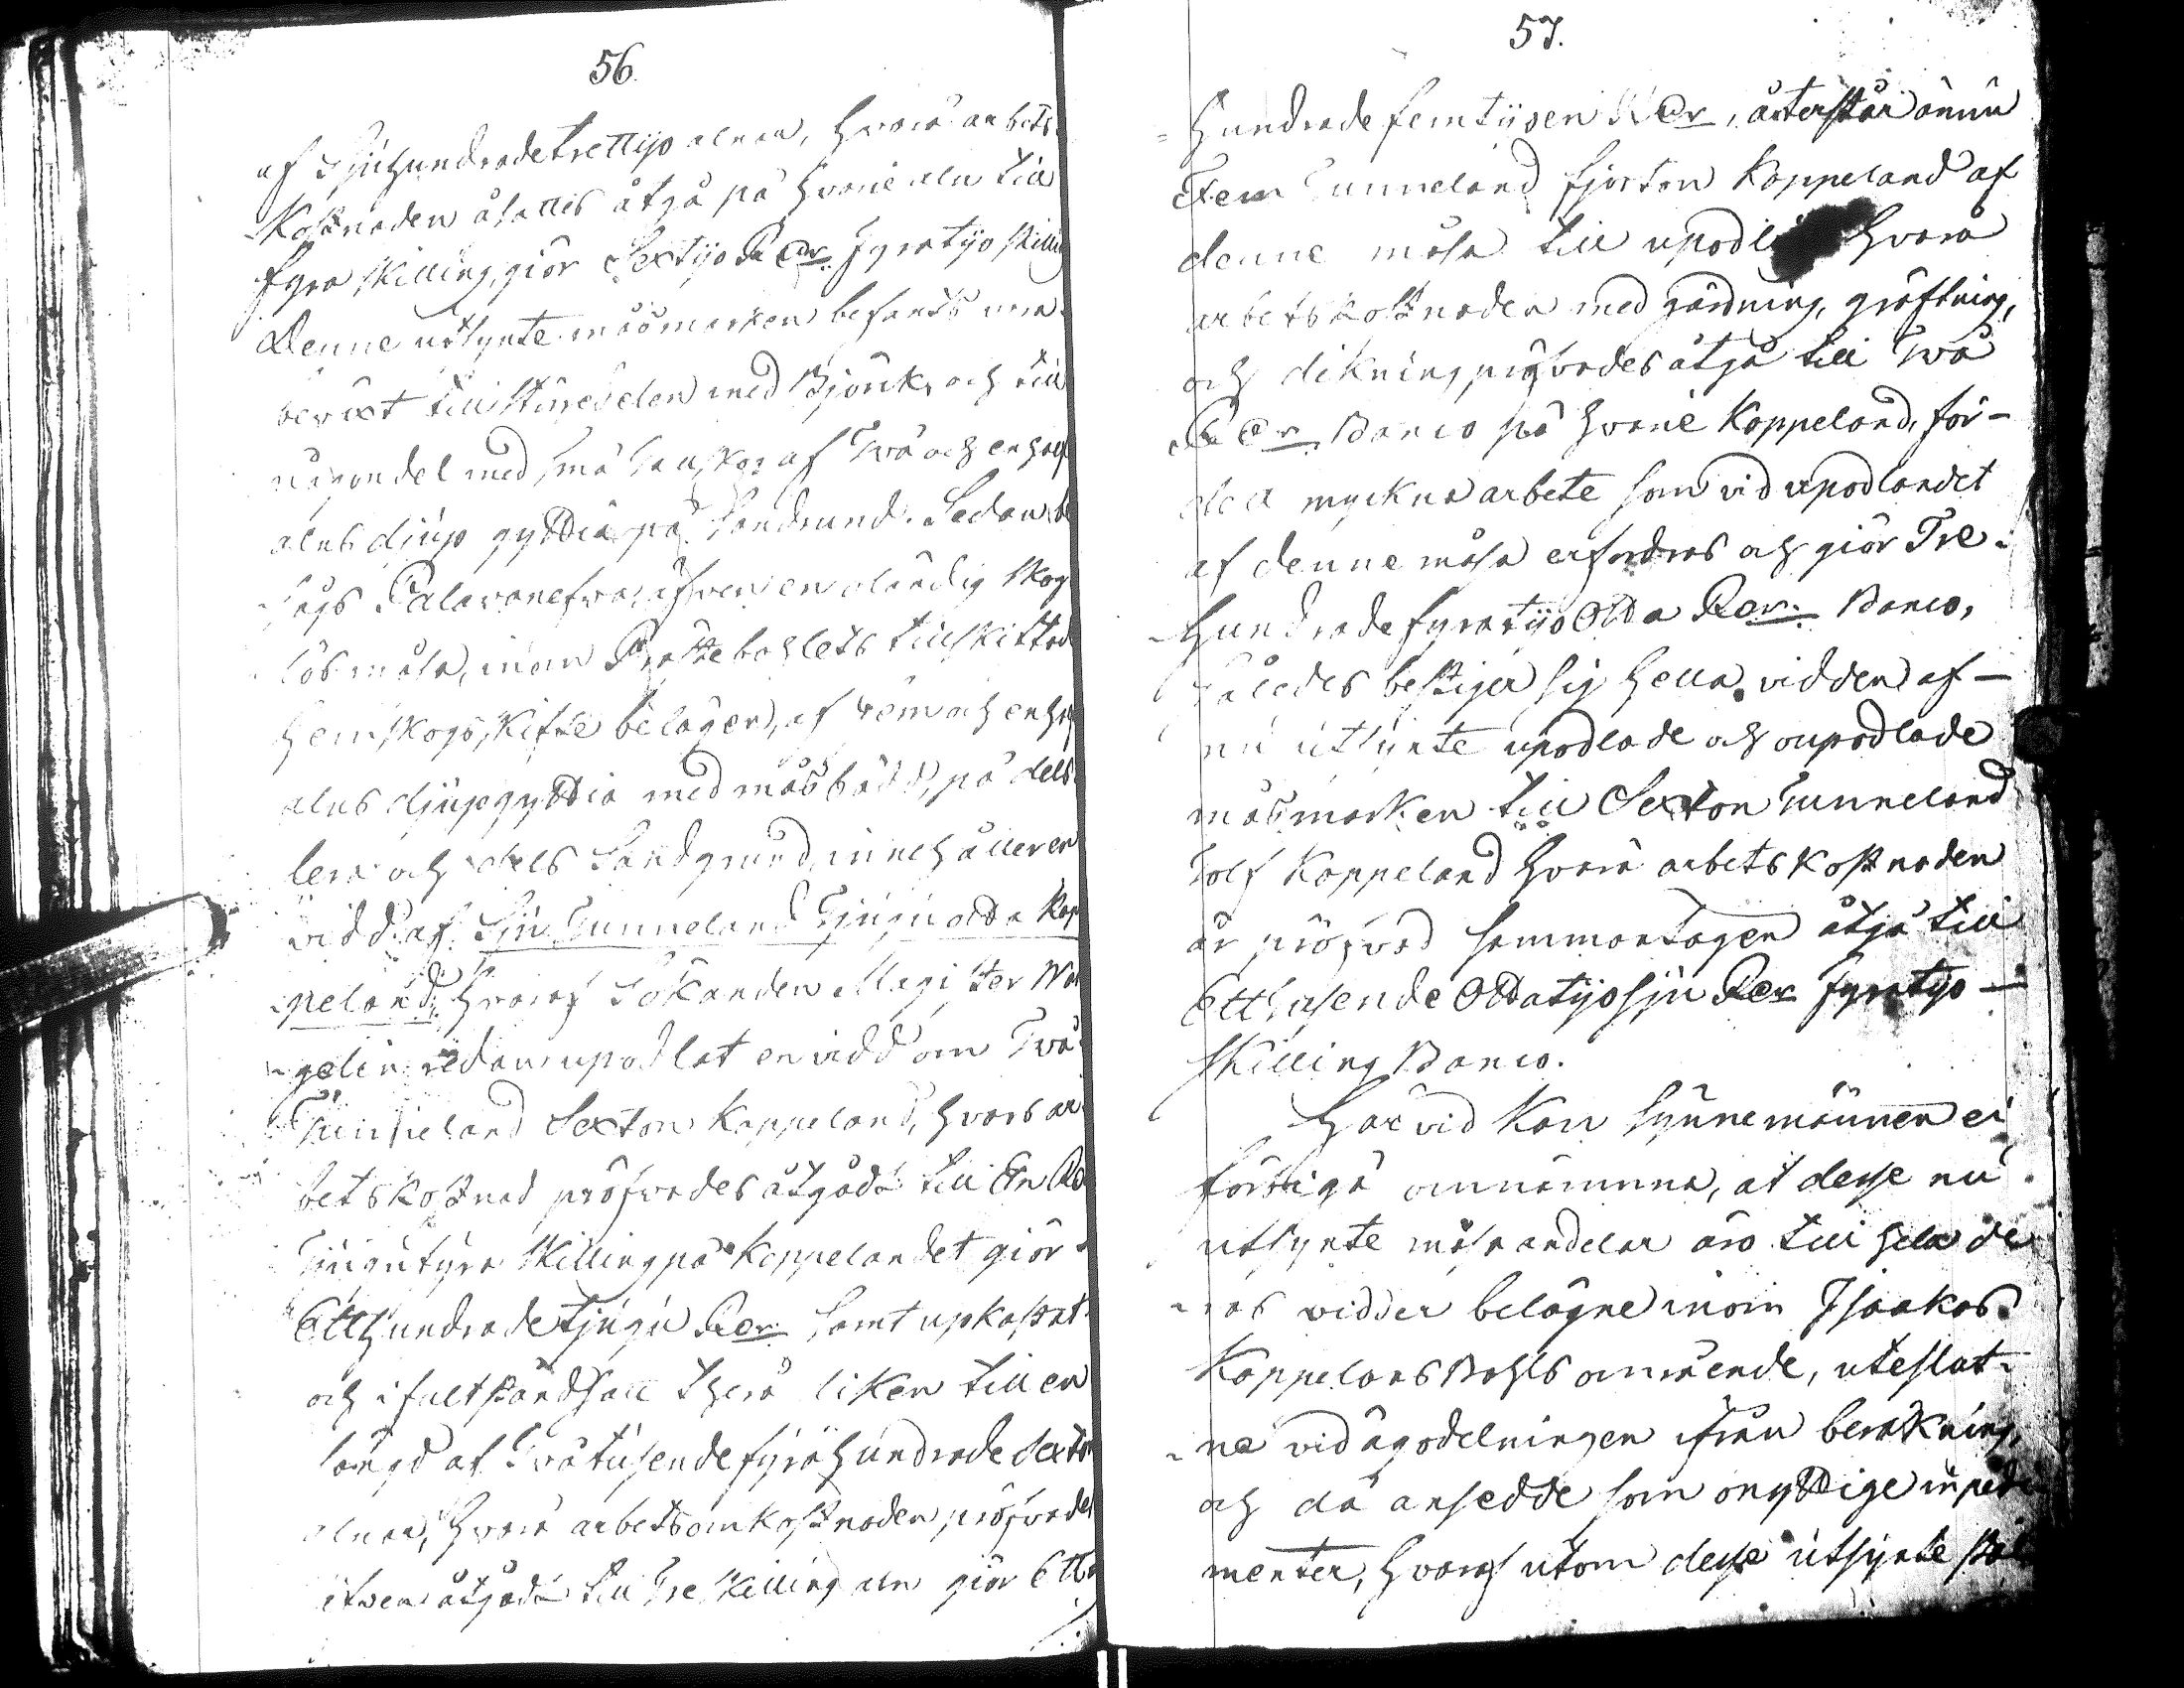 56.
af Sjuhundrade trettijo alnar, hvarå arbets
kostnaden ålattes åtgå på hvarie aln till
fyra skilling, giör Sextijo Rdr fyratijo skilling
Denne utsynte måsmarken befants vara
bevext till större delen med Björk, och till
någon del med små buskar af två och en half
alns djup gyttia på Sandgrund. Sedan be
sågs äfven en oländig skog
lös måsa, inom Prästebohlets tillskiftade
hemskogsskifte belägen, af fem och en half
alns djup gyttia med måsbädd, på dels
lera och dels Sandgrund, innehåller en
vidd af Sju Tunneland Tjugu otta Kap
peland, hvaraf Sökanden Magister
gelin redan upodlat en vidd om Två
Tunneland Sexton Kappeland, hvars ar
betskostnad pröfvades åtgådt till En Rdr
Tjugufyra Skilling på Kappelandet giör
Etthundrade tjugu Rdr samt upkastat
och i fullständ satt diken till en
längd af Tvåtusende fyrahundrade Sexton
alnar, hvarå arbetsomkostnaden pröfvades
äfven åtgådt till Tre Skilling aln giör Ett
57.
Hundrade femtijoen Rdr, återstår ännu
Fem Tunneland fjorton Kappeland af
denne måsa till upodling hvarå
arbetskostnaden med gärdning, gräftning,
och dikning pröfvades åtgå till Två
Rdr Banco på hvarie Kappeland, för
det myckna arbete som vid upodlandet
af denne måsa erfordras och giör Tre
Hundrade fyratijo Otta Rdr Banco,
Således bestiger sig hella vidden af
nu utsynte upodlade och oupodlade
måsmarken till Sexton Tunneland
Tolf Kappeland hvarå arbetskostnaden
är pröfvad sammantagen åtgå till
Ettusende Ottatijosju Rdr fyratijo
Skilling Banco.
Härvid kan Synnemännen ei
förbigå omnämna, at desse nu
utsynte måsandelar äro till hela de
ras vidder belägne inom Isaakas
Kappelans Bohls omräende, uteslut
na vid ägodelningen ifrån beräkning,
och då ansedde som onyttige impedi
menter, hvaraf utom desse utsynte